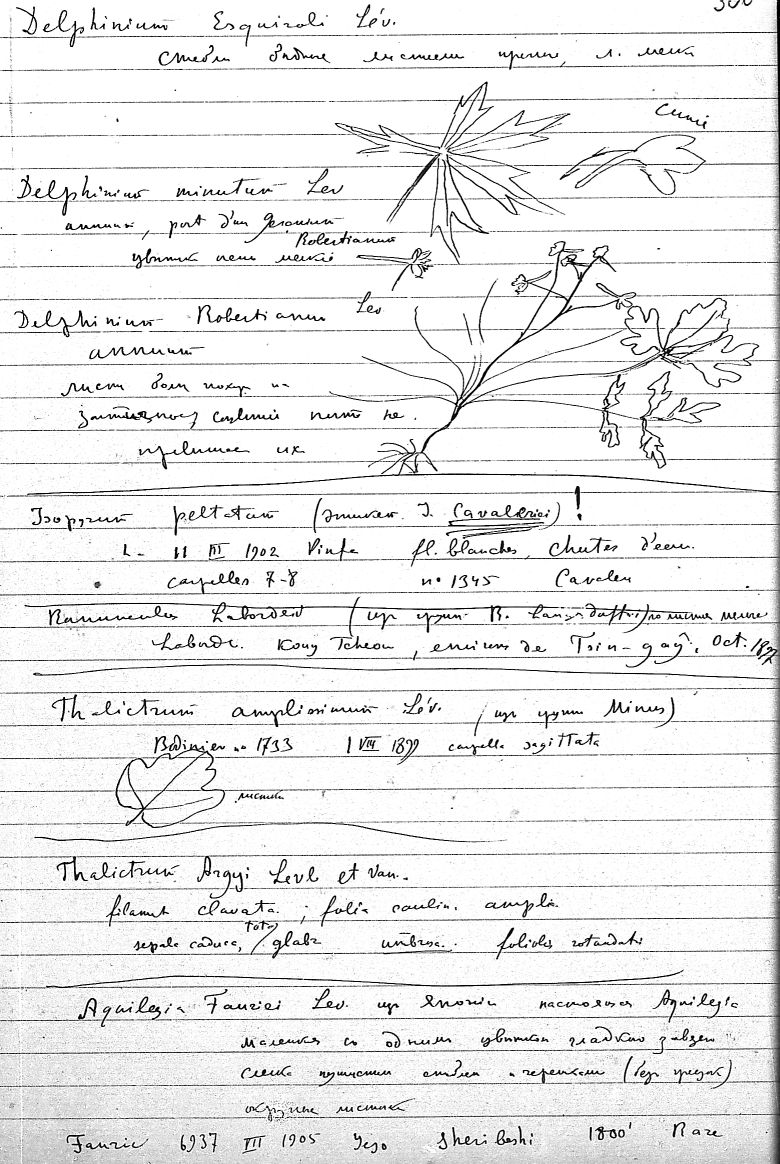 Delphinium Esquiroli Lév.
листьями л. мелк
синие
Delphinium minutum Lev
annuum, port d'un Geranium
Robertianum
цветки очень мелкие
Delphinium Robertianum Lev
annuum
листья более похож на
не
их
Isopyrum peltatum (этикет. I. Cavaleriei) !
L. 11 III 1902 Pinfa fl. blanches, chutes d'eau.
carpelles 7-8 n° 1345 Cavalerie
Ranunculus Labordei (из групп R. Langsdorffii)
Laborde. Kouy Tcheou, environs de Tsin-gay, Oct. 1897
Thalictrum amplissimum Lév. (из групп Minus)
Bodinier no 1733 1 VIII 1899 carpella sagittata
листик
Thalictrum Argyi Levl et Van.
filament clavata ; folia caulin. ampla
sepala caduca, tota glabr umbrosa. foliolis rotundati
Aquilegia Fauriei Lev. из Японии настоящая Aquilegia
маленькая с одним цветком гладкою
слегка пушистым стеблем и черешками (без
округлые листики
Faurie 6937 III 1905 Yeso Sheribeshi 1800' Rare